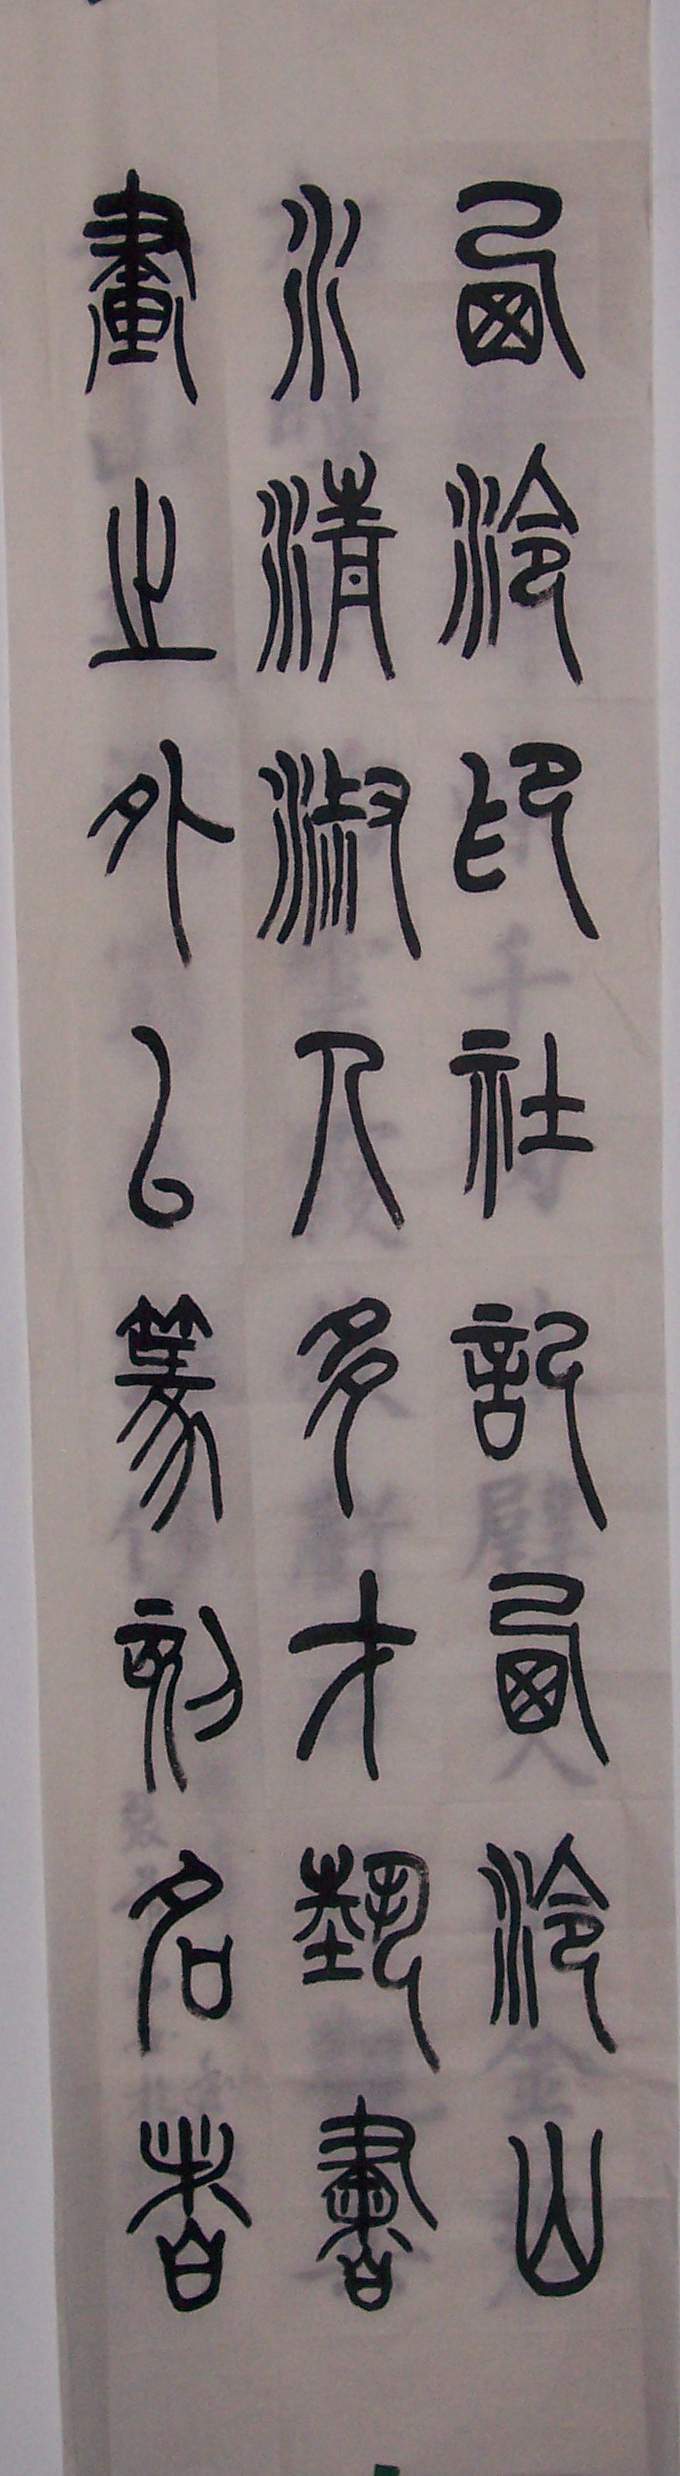 西泠印社記西泠山
水清淑人多才藝書
畫之外以篆刻名者